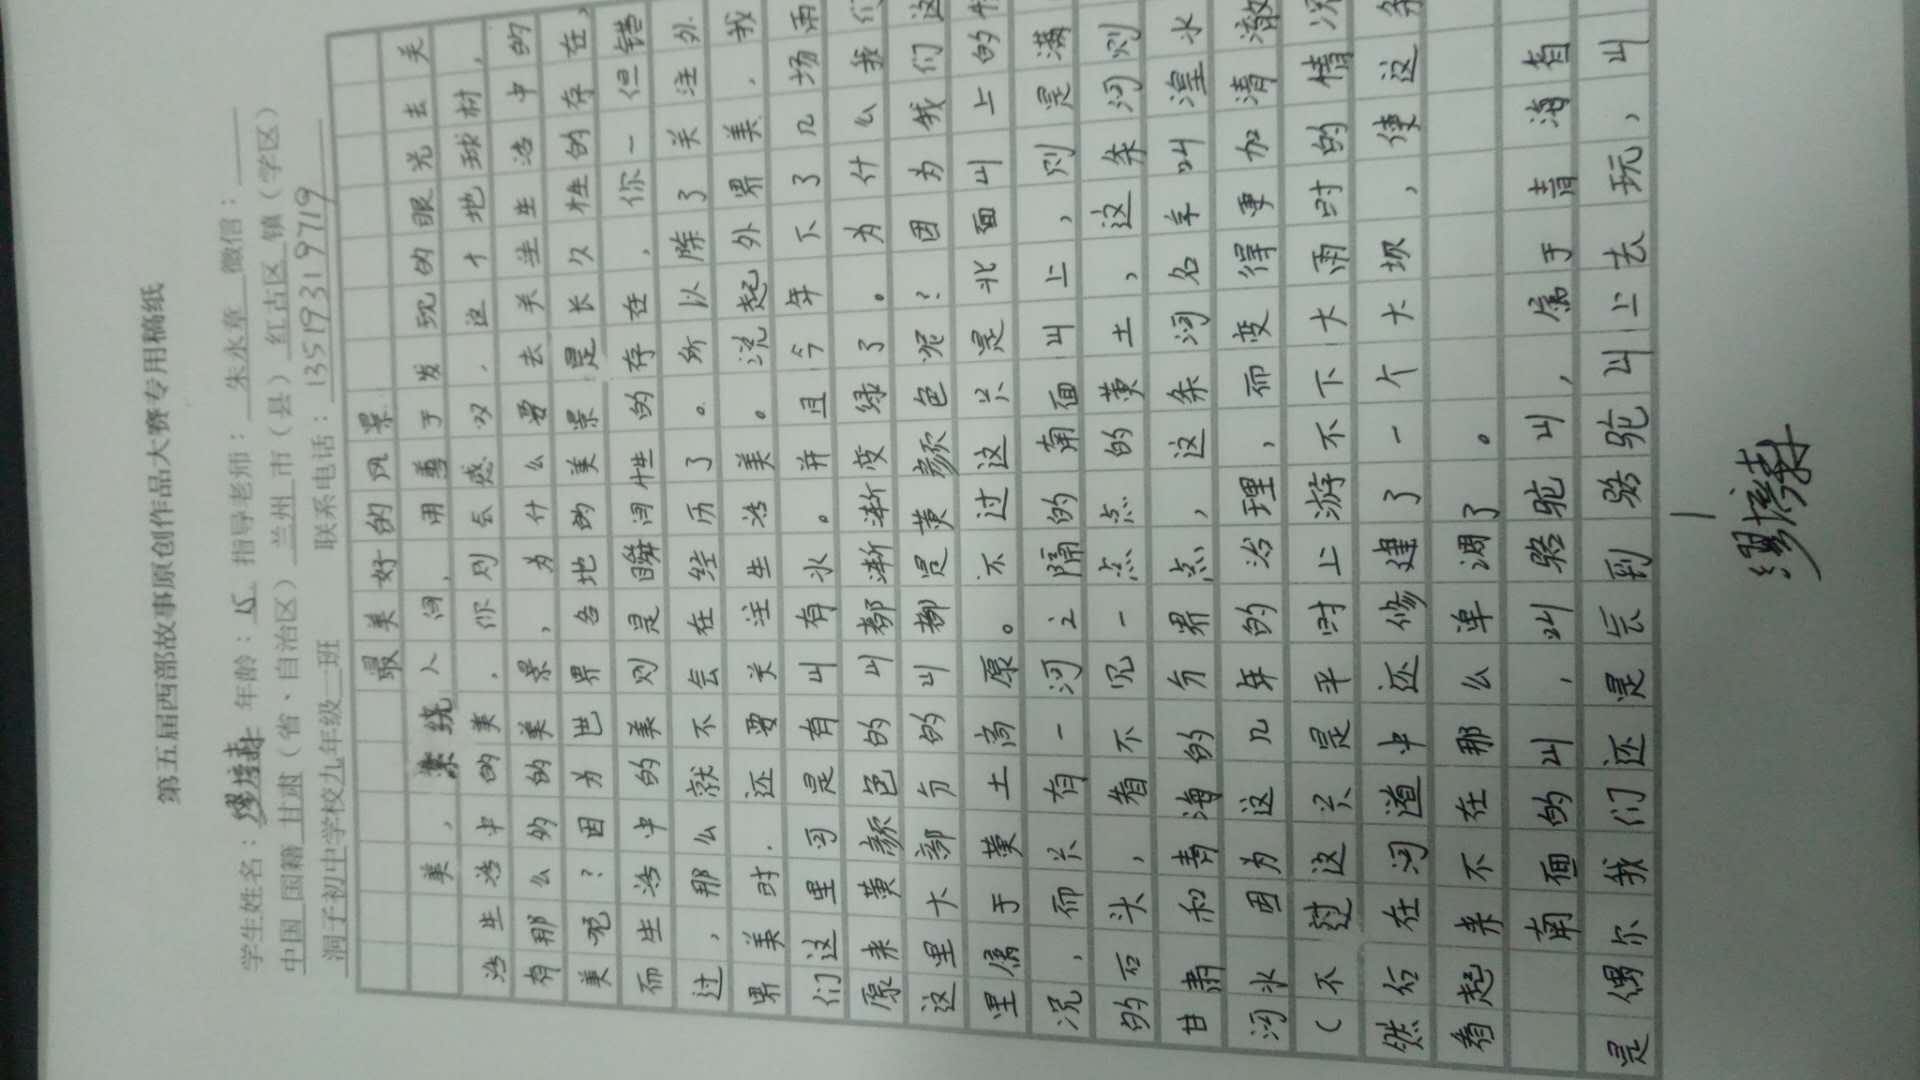 第五届西部故事原创作品大赛专用稿纸
学生姓名： 年龄：15 指导老师：朱永章 微信：
中国 国籍 甘肃（省、自治区）兰州 市（县）红古区 镇（学区）
洞子初中学校九年级 班 联系电话：13519319719
最美好的风景
美，萦绕人间，用善于发现的眼光去关
活生活中的美，你则会感叹，这个地球村，
有那么多的美景，为什么要去关注生活中的
美呢？因为世界各地的美景是长久性的存在，
而生活中的美则是瞬间性的存在，你一但错
过，那么就不会在经历了。所以除了关注外
界美时，还要关注生活美。说起外界美，我
们这里可是有山有水。并且今年下了几场雨
原来黄颜色的山都渐渐变绿了。为什么我们
这里大部分的山都是黄颜色呢？因为我们这
里属于黄土高原。不过这只是北面山上的情
况，而只有一河之隔的南面山上，则是满
的石头，看不见一点点的黄土，这条河则
甘肃和青海的分界点，这条河名字叫湟水
河水因为这几年的治理，而变得更加清澈
（不过这只是平时上游不下大雨时的情况
然后在河道中还修建了一个大坝，使这条
看起来不在那么单调了。
南面的山，叫骆驼山，属于青海省
是偶尔我们还是会到骆驼山上去玩，山